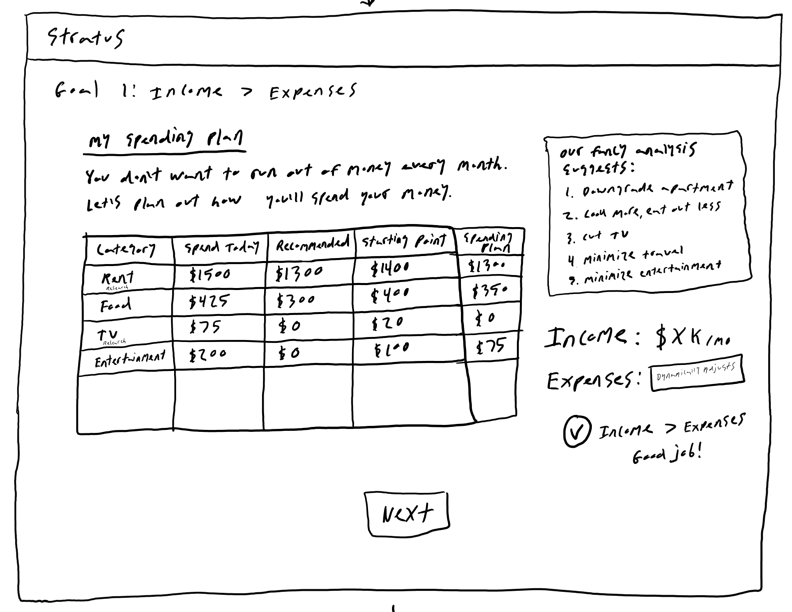 Stratus
Goal 1: Income > Expenses
My Spending Plan
You don't want to run out of money every month.
Let's plan out how you'll spend your money.
Category Spend Today Recommended Starting Point Spending Plan
Rent $1500 $1300 $1400 $1300
Research
Food $425 $300 $400 $350
TV $75 $0 $20 $0
Research
Entertainment $200 $0 $100 $75
our fancy analysis
suggests:
1. Downgrade apartment
2. Cook more, eat out less
3. cut TV
4 minimize travel
5. minimize entertainment
Income: $XK/mo
Expenses: Dynamically Adjusts
Income > Expenses
Good job!
Next